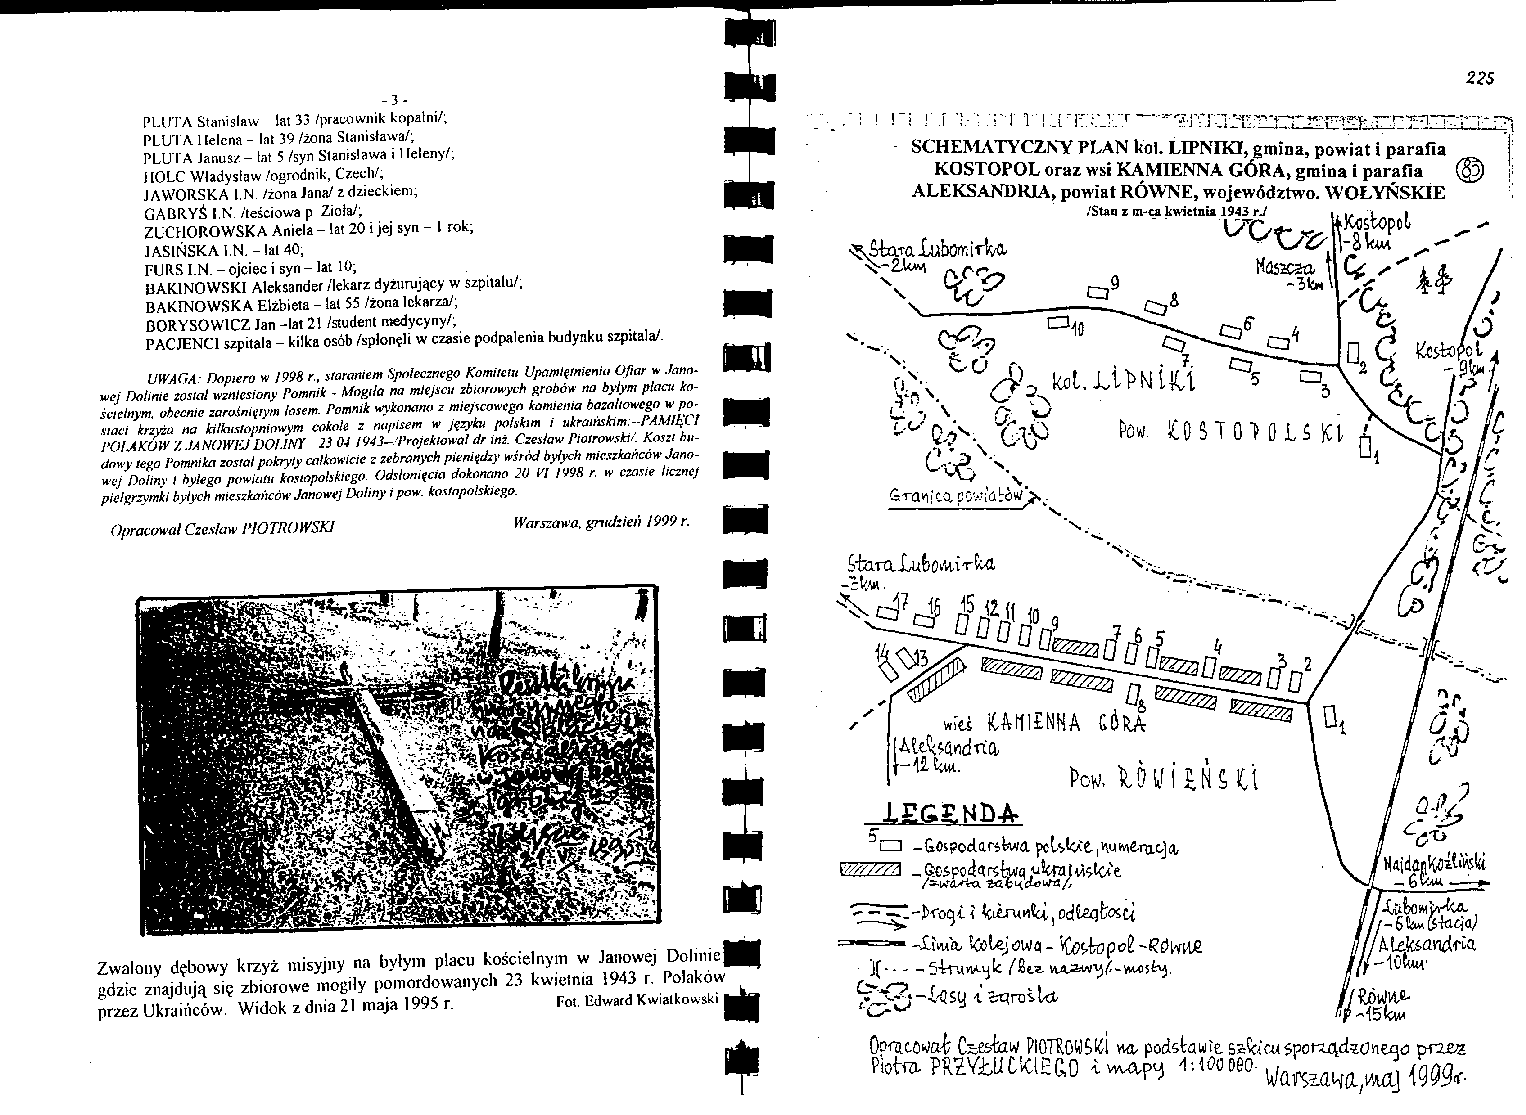 - 3 -
PLUTA Stanisław - lat 33 /pracownik kopalni/;
PLUTA Helena - lat 39 /żona Stanisława/;
PLUTA Janusz - lat 5 /syn Stanisława i Heleny/;
HOLC Władysław /ogrodnik, Czech/;
JAWORSKA I.N. /żona Jana/ z dzieckiem;
GABRYŚ I.N. /teściowa p. Zioła/;
ZUCHOROWSKA Aniela - lat 20 i jej syn - 1 rok;
JASIŃSKA I.N. - lat 40;
FURS I.N. - ojciec i syn - lat 10;
BAKINOWSKI Aleksander /lekarz dyżurujący w szpitalu/;
BAKINOWSKA Elżbieta - lat 55 /żona lekarza/;
BORYSOWICZ Jan -lat 21 /student medycyny/;
PACJENCI szpitala - kilka osób /spłonęli w czasie podpalenia budynku szpitala/.
UWAGA: Dopiero w 1998 r., staraniem Społecznego Komitetu Upamiętnienia Ofiar w Jano-
wej Dolinie został wzniesiony Pomnik - Mogiła na miejscu zbiorowych grobów na byłym placu ko-
ścielnym, obecnie zarośniętym lasem. Pomnik wykonano z miejscowego kamienia bazaltowego w po-
staci krzyża na kilkustopniowym cokole z napisem w języku polskim i ukraińskim:-PAMIĘCI
POLAKÓW Z JANOWEJ DOLINY 23 04 1943-/Projektował dr inż. Czesław Piotrowski/. Koszt bu-
dowy tego Pomnika został pokryty całkowicie z zebranych pieniędzy wśród byłych mieszkańców Jano-
wej Doliny i byłego powiatu kostopolskiego. Odsłonięcia dokonano 20 VI 1998 r. w czasie licznej
pielgrzymki byłych mieszkańców Janowej Doliny i pow. kostopolskiego.
Opracował Czesław PIOTROWSKI Warszawa, grudzień 1999 r.
Zwalony dębowy krzyż misyjny na byłym placu kościelnym w Janowej Dolinie
gdzie znajdują się zbiorowe mogiły pomordowanych 23 kwietnia 1943 r. Polaków
przez Ukraińców. Widok z dnia 21 maja 1995 r. Fot. Edward Kwiatkowski
225
SCHEMATYCZNY PLAN kol. LIPNIKI, gmina, powiat i parafia
KOSTOPOL oraz wsi KAMIENNA GÓRA, gmina i parafia
ALEKSANDRIA, powiat RÓWNE, województwo. WOŁYŃSKIE
85
/Stan z m-ca kwietnia 1943 r./
Kostopol
-8 km
Stara Lubomirka
-2km
Maszcza
-3km
9
8
10
6
4
7
5
3
2
Kostopol
-9km
kol. LIPNIKI
Pow. KOSTOPOLSKI
1
Granica powiatów
Stara Lubomirka
-2km.
17 16 15 12 11 10 9 7 6 5 4 3 2
14 13
8
1
wieś KAMIENNA GÓRA
Aleksandria
-12 km.
Pow. RÓWIEŃSKI
LEGENDA
5 - Gospodarstwa polskie, numeracja
- Gospodarstwa ukraińskie
/zwarta zabudowa/.
- Drogi i kierunki, odległości
- Linia kolejowa - Kostopol - Równe
- Strumyk /Bez nazwy/ - mosty.
- Lasy i zarośla
Najdan Koźliński
- 6 km
Lubomirka
- 6 km (stacja)
Aleksandria
- 10km
Równe
-15km
Opracował Czesław PIOTROWSKI na podstawie szkicu sporządzonego przez
Piotra PRZYŁUCKIEGO i mapy 1:100 000.
Warszawa, maj 1999r.